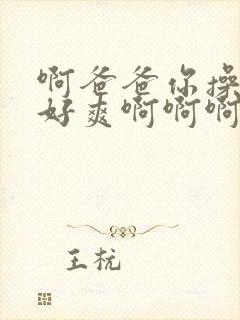 啊爸爸你操
好爽啊啊啊
王杬